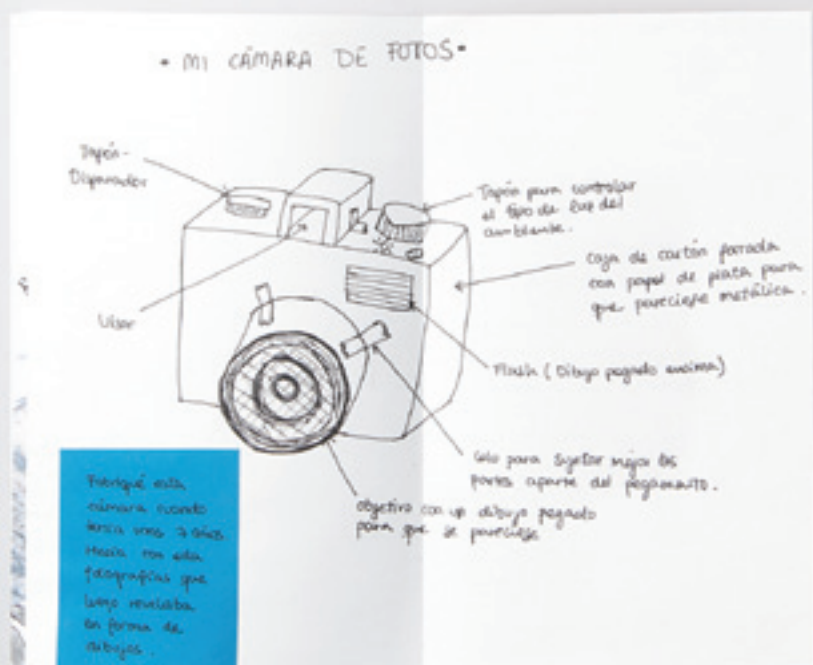 • MI CÁMARA DE FOTOS •
Tapón-
Disparador
Tapón para controlar
el tipo de luz del
ambiente.
Caja de cartón forrada
con papel de plata para
que pareciese metálica.
Visor
Flash (Dibujo pegado encima)
Celo para sujetar mejor las
partes aparte del pegamento.
objetivo con un dibujo pegado
para que se pareciese
Fabriqué esta
cámara cuando
tenía unos 7 años
Hacía con ella
fotografías que
luego revelaba
en forma de
dibujos.